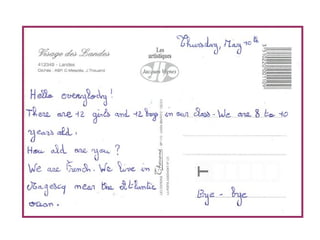 Thursday, May 10th
Visages des Landes
#12349 - Landes
Les
artistiques
Jacques Vignes
Hello everybody!
There are 12 girls and 12 boys in our class - We are 8 to 10
years old.
How old are you?
We are French. We live in
Magescq near the Atlantic
ocean.
Bye - bye